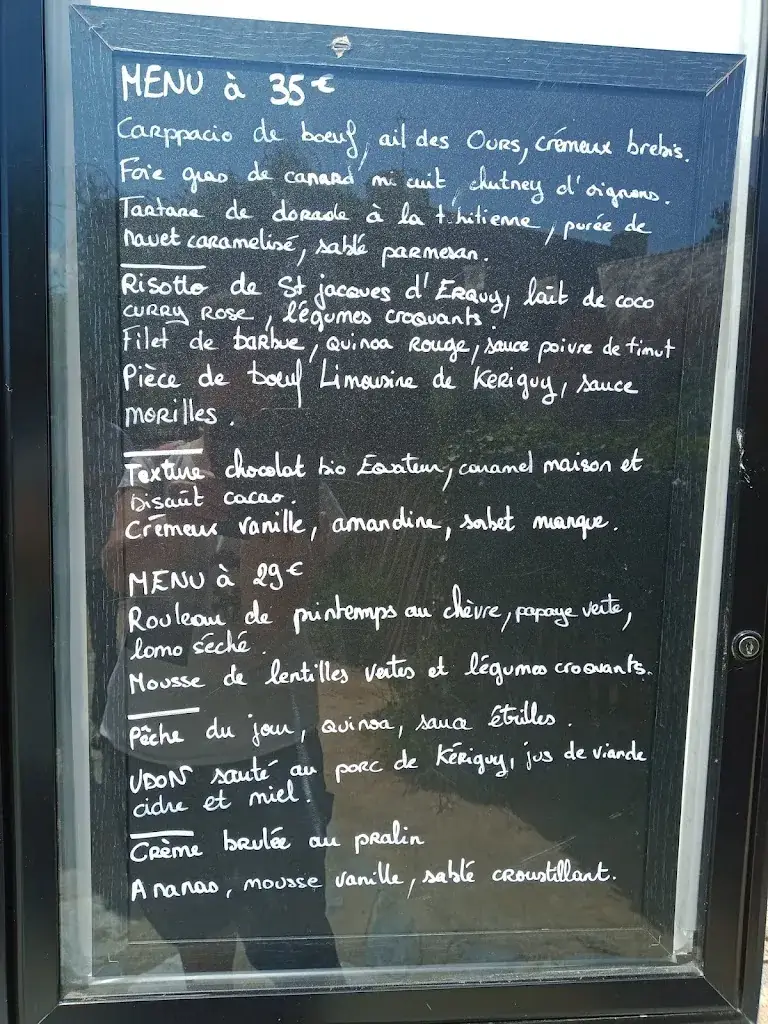 MENU à 35€
Carppacio de boeuf, ail des Ours, crémeux brebis.
Foie gras de canard mi cuit, chutney d'oignons.
Tartare de dorade à la tahitienne, purée de
navet caramélisé, sablé parmesan.
Risotto de St jacques d'Erquy, lait de coco
curry rose, légumes croquants.
Filet de barbue, quinoa Rouge, sauce poivre de timut
Pièce de boeuf Limousine de Keriguy, sauce
morilles.
Texture chocolat bio Equateur, caramel maison et
biscuit cacao.
Crémeux vanille, amandine, sorbet mangue.
MENU à 29€
Rouleau de printemps au chèvre, papaye verte,
lomo séché.
Mousse de lentilles vertes et légumes croquants.
Pêche du jour, quinoa, sauce étrilles.
UDON sauté au porc de Kériguy, jus de viande
cidre et miel.
Crème brulée au pralin
Ananas, mousse vanille, sablé croustillant.